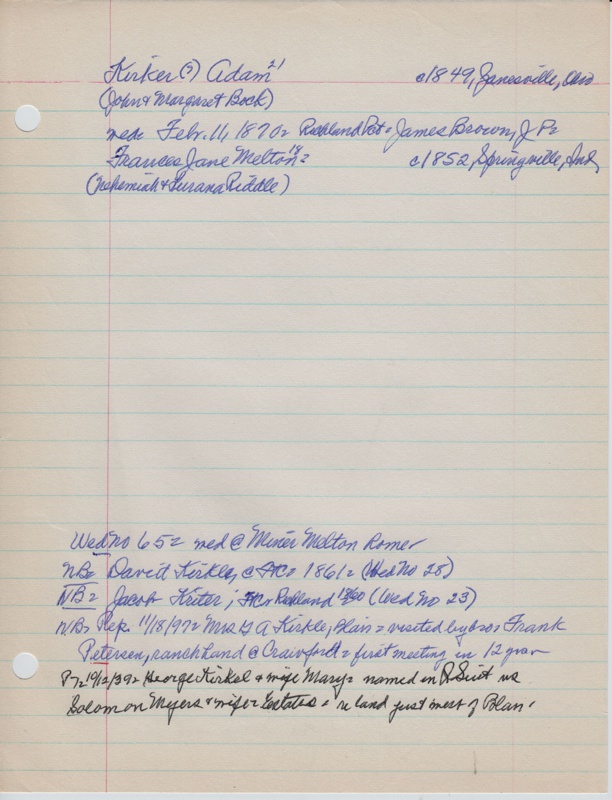 Kirker (?) Adam 21 c1849, Janesville, Ohio
(John & Margaret Bock)
med= Febr. 11, 1870= Richland = James Brown, J P=
Frances Jane Melton 18= c1852, Springville, Ind,
(Nehemiah & Riddle)
Wed no 65= med @ Miner Melton
NB= David Kirkle, c 1861= (Wed No 28)
NB= Jacob Kriter, Richland 1860 (Wed No 23)
NB= Rep. 11/18/97= Mrs G A Kirkle, Blain = visited by bro= Frank
Petersen, ranch hand @ Crawford = first meeting in 12 years
P7= 19/12/39= George Kirkel & wife Mary= named in Suit vs
Solomon Meyers & wife = re land just west of Blain.